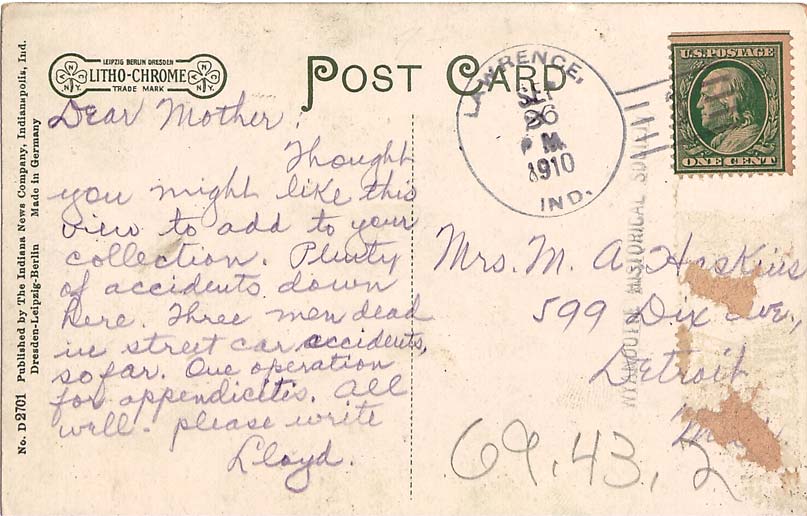 LEIPZIG BERLIN DRESDEN
LITHO-CHROME
TRADE MARK
N.Y. N.Y.
POST CARD
LAWRENCE,
SEP
26
P M.
1910
IND.
U.S. POSTAGE
ONE CENT
No. D 2701 Published by The Indiana News Company, Indianapolis, Ind.
Dresden-Leipzig-Berlin Made in Germany
Dear Mother:
Thought
you might like this
view to add to your
collection. Plenty
of accidents down
here. Three men dead
in street car accidents,
so far. One operation
for appendicitis. All
well. please write
Lloyd.
Mrs. M. A. Haskins
599 Dix Ave.,
Detroit
WYANDOTTE HISTORICAL
69.43.2